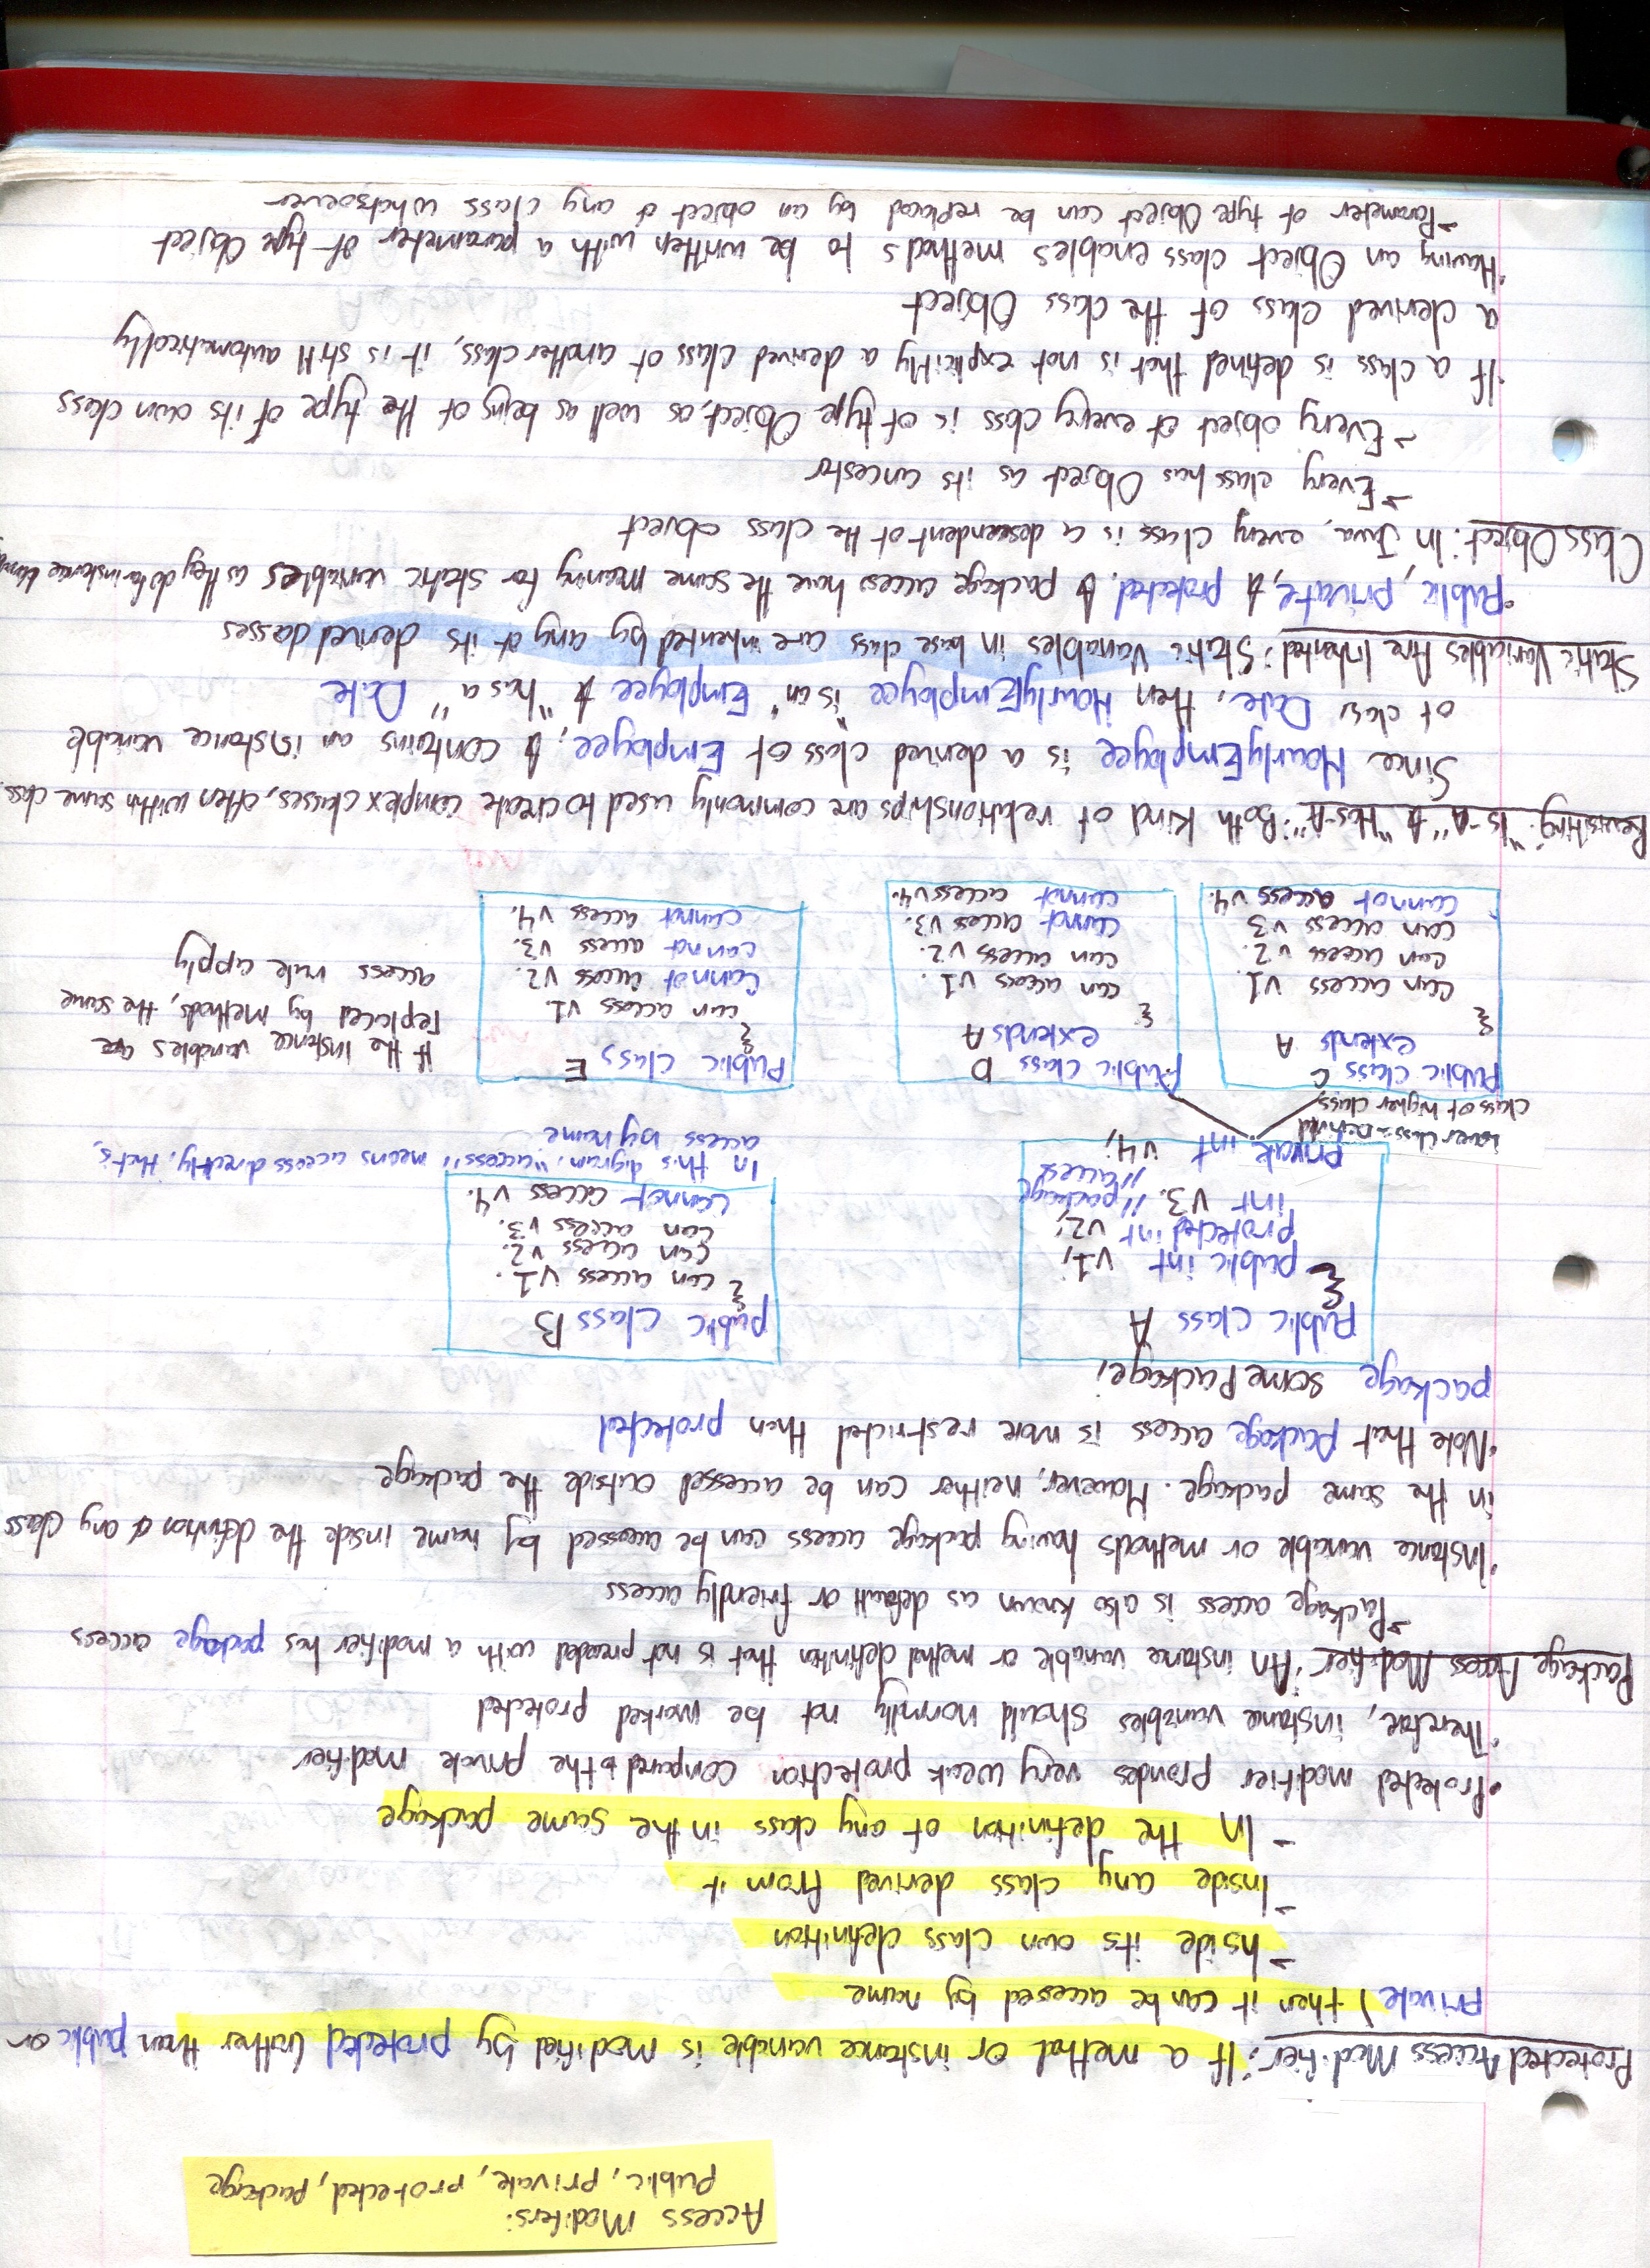 Access Modifers:
Public, private, protected, package
Protected Access Modifier: If a method or instance variable is modified by protected (rather than public or
private) then it can be accessed by name
- Inside its own class definition
- Inside any class derived from it
- In the definition of any class in the same package
• Protected modifier provides very weak protection compared to the private modifier
• Therefore, instance variables should normally not be marked protected
Package Access Modifier: An instance variable or method definition that is not preceded with a modifier has package access
→ Package access is also known as default or friendly access
• Instance variable or methods having package access can be accessed by name inside the definition of any class
in the same package. However, neither can be accessed outside the package
• Note that package access is more restricted than protected
package somePackage;
Public class A
{
public int v1;
protected int v2;
int v3. //package
//access
private int v4;
public class B
{
can access v1.
can access v2.
can access v3.
cannot access v4.
In this digram, "access" means access directly, that is,
access by name
lower class = behind
class of higher class
public class C
extends A
{
can access v1
can access v2.
can access v3
cannot access v4.
public class D
extends A
{
can access v1
can access v2.
cannot access v3.
cannot access v4.
Public class E
{
can access v1.
cannot access v2.
cannot access v3.
cannot access v4.
If the instance variables are
replaced by methods, the same
access rule apply
Revisiting "Is-A" & "Has-A": Both kind of relationships are commonly used to create complex classes, often within same class.
Since HourlyEmployee is a derived class of Employee, & contains an instance variable
of class Date, then HourlyEmployee "is an" Employee & "has a" Date
Static Variables Are Inherited: Static variables in base class are inherited by any of its derived classes
• Public, private, & protected, & package access have the same meaning for static variables as they do for instance
Class Object: In Java, every class is a descendent of the class object
→ Every class has Object as its ancestor
→ Every object of every class is of type Object, as well as being of the type of its own class
• If a class is defined that is not explicitly a derived class of another class, it is still automatically
a derived class of the class Object
• Having an Object class enables methods to be written with a parameter of type Object
→ Parameter of type Object can be replaced by an object of any class whatsoever